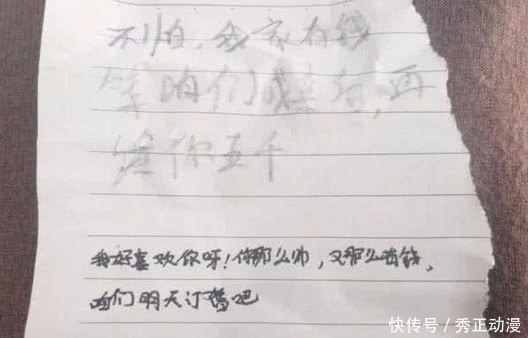 不怕,我家有钱
等咱们成,再
你五千
我好喜欢你呀!你那么帅,又那么有钱,
咱们明天订婚吧
快传号/秀正动漫